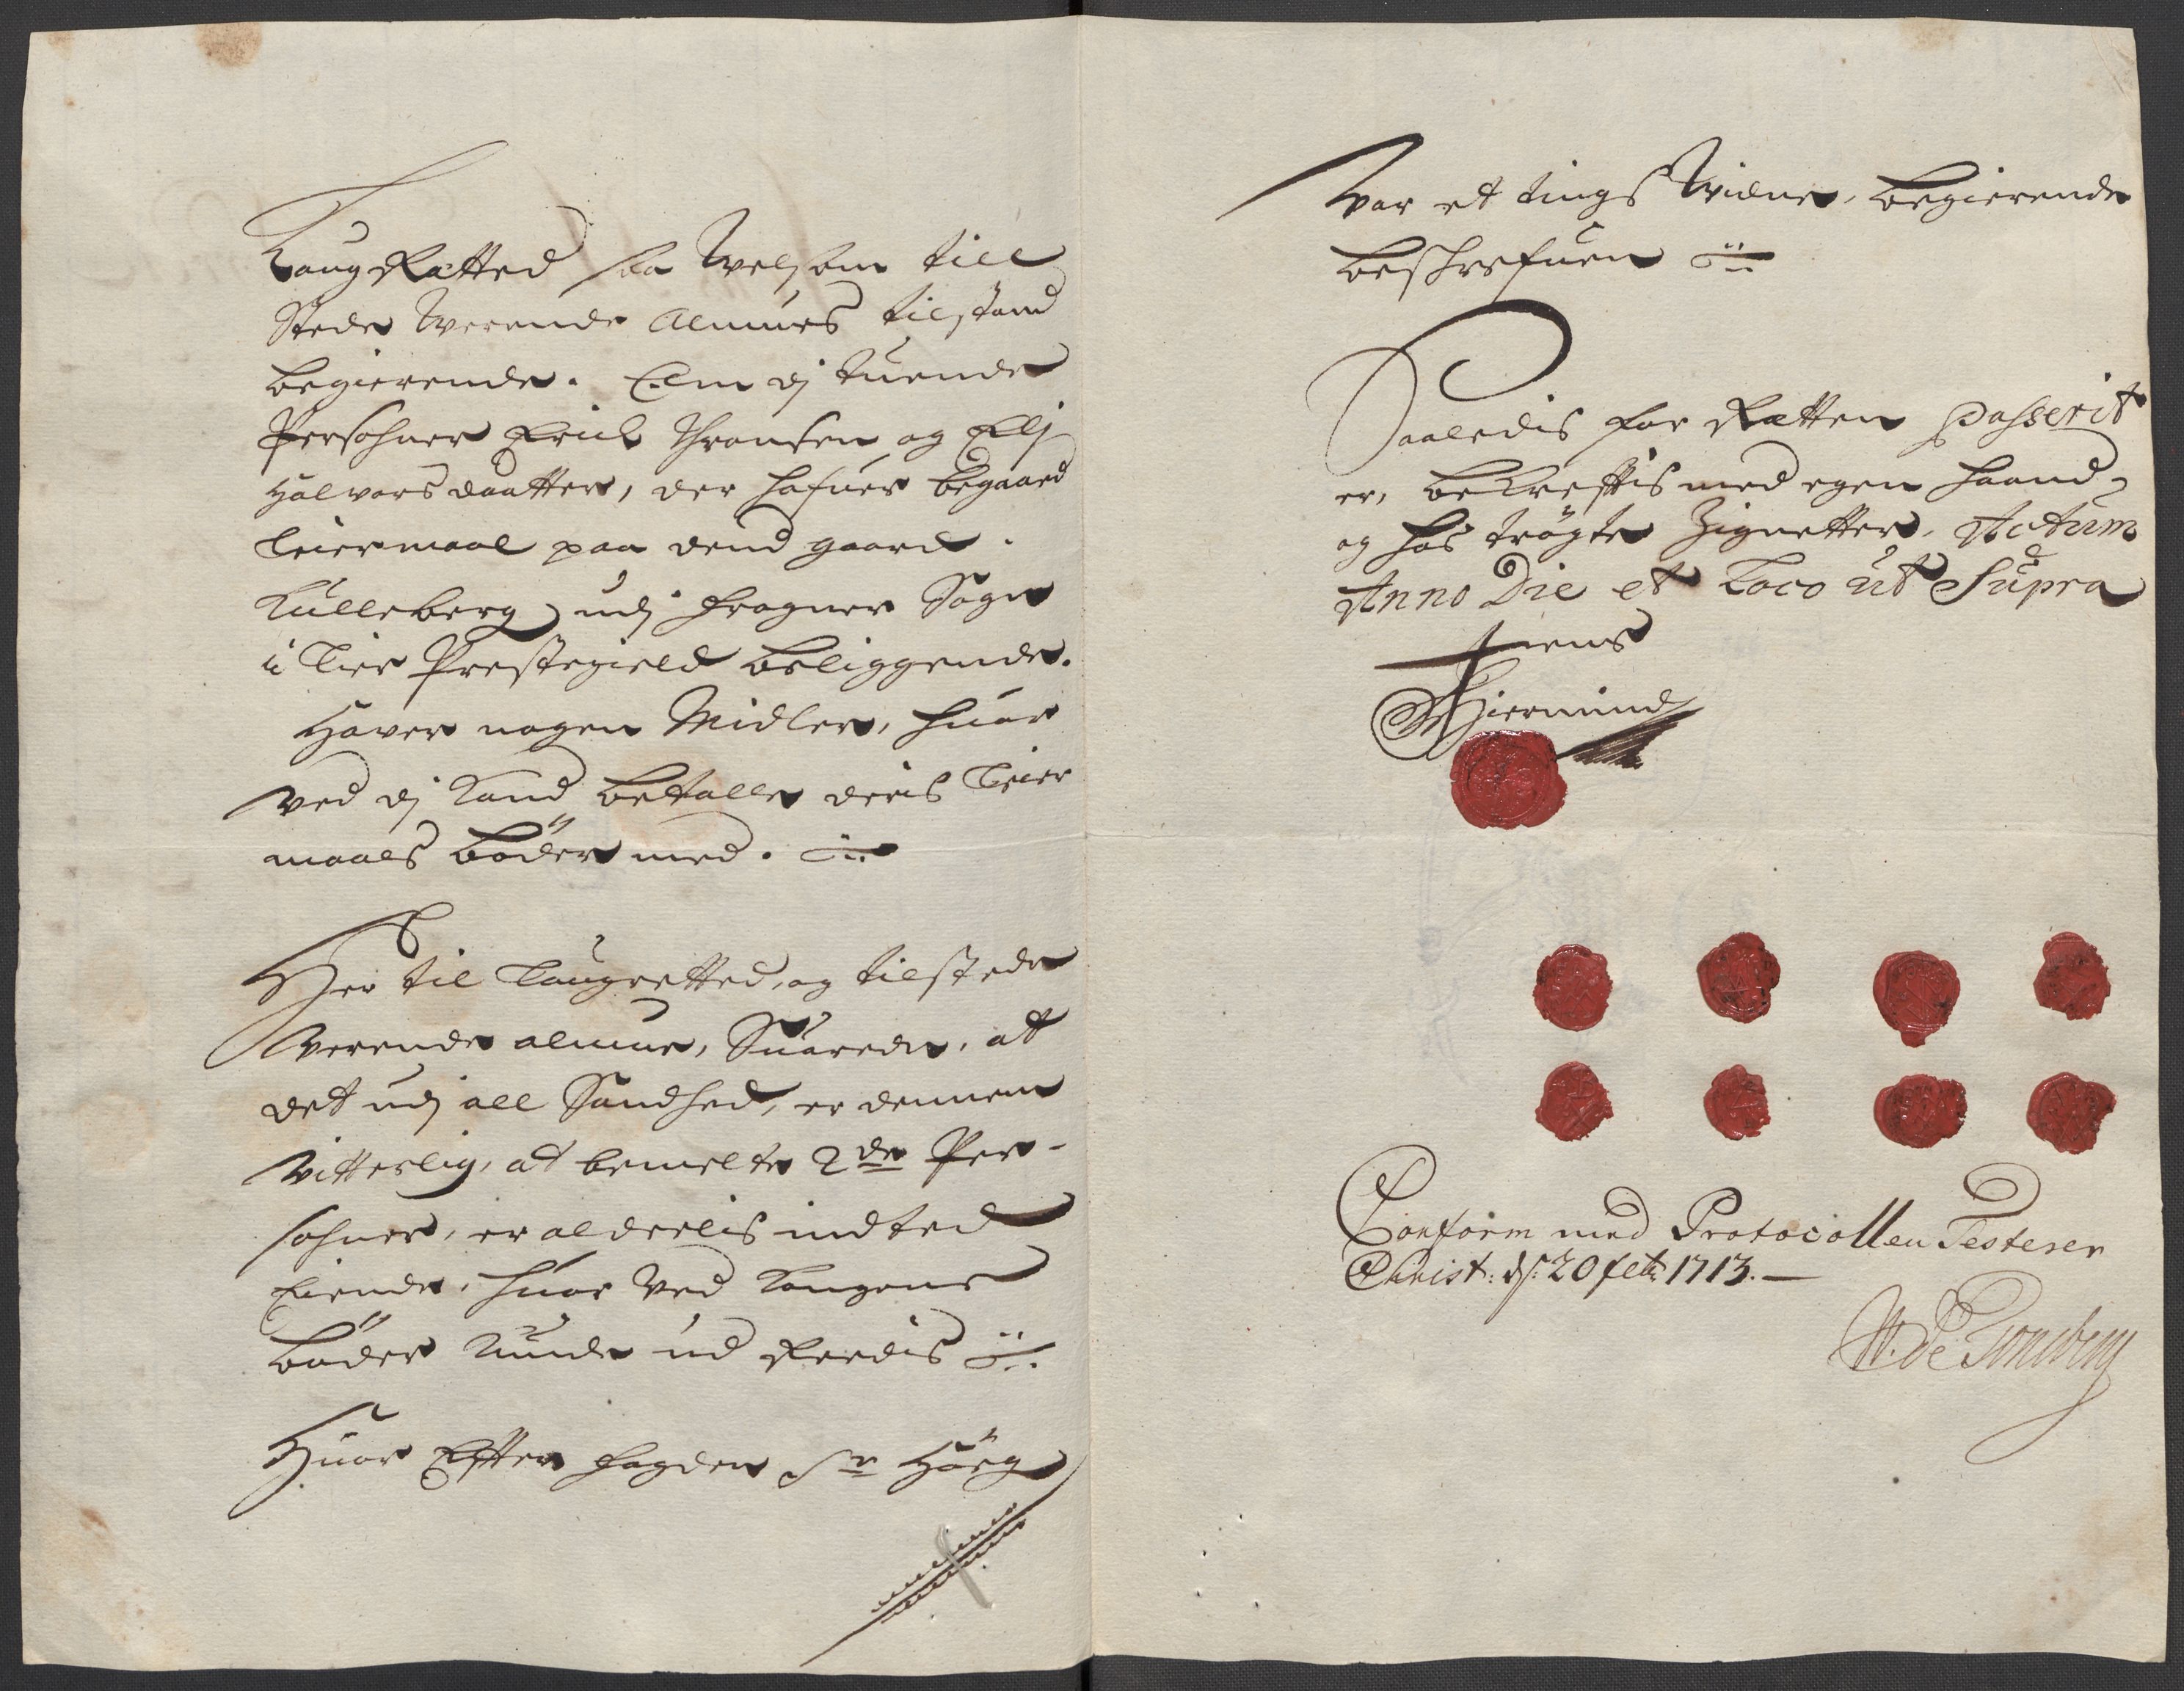 Laug Rætted saa Velsom till
Stede Werende Almues tilstand
begierende. Om dj tuende
Persohner Erick Thronsen og Elj
Halvorsdaatter, der hafuer begaaed
Leiermaal paa dend gaard.
Kulleberg udj Frogner Sogn
i Lier Prestegield beliggende.
Haver nogen Midler, huor
ved dj kand betalle deris Leier
maals bøder med.
Her til Laugretted, og tilstede
verende almue, Suarede, at
det udj all Sandhed, er dennem
vitterlig, at bemelte 2de Per-
sohner, er alderlis indted
Eiende, huor ved kongens
bøder kunde ud Redis
Huor Efter fogden Sr Høeg
var et tings Widne, begierende
beschrefuen
Saaledis for Rætten passerit
er, bekreftis med egen haand
og hos trøgte Zignetter, Actum
Anno Die et Loco ut Supra
Conform med Protocollen Testerer
Christ: ds: 20 feb: 1713.